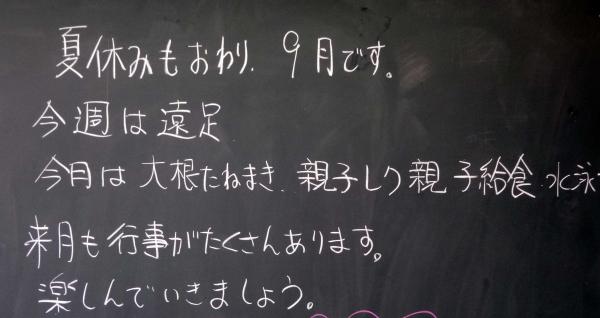 夏休みもおわり、9月です。
今週は遠足
今月は大根たねまき、親子レク親子給食、水泳
来月も行事がたくさんあります。
楽しんでいきましょう。